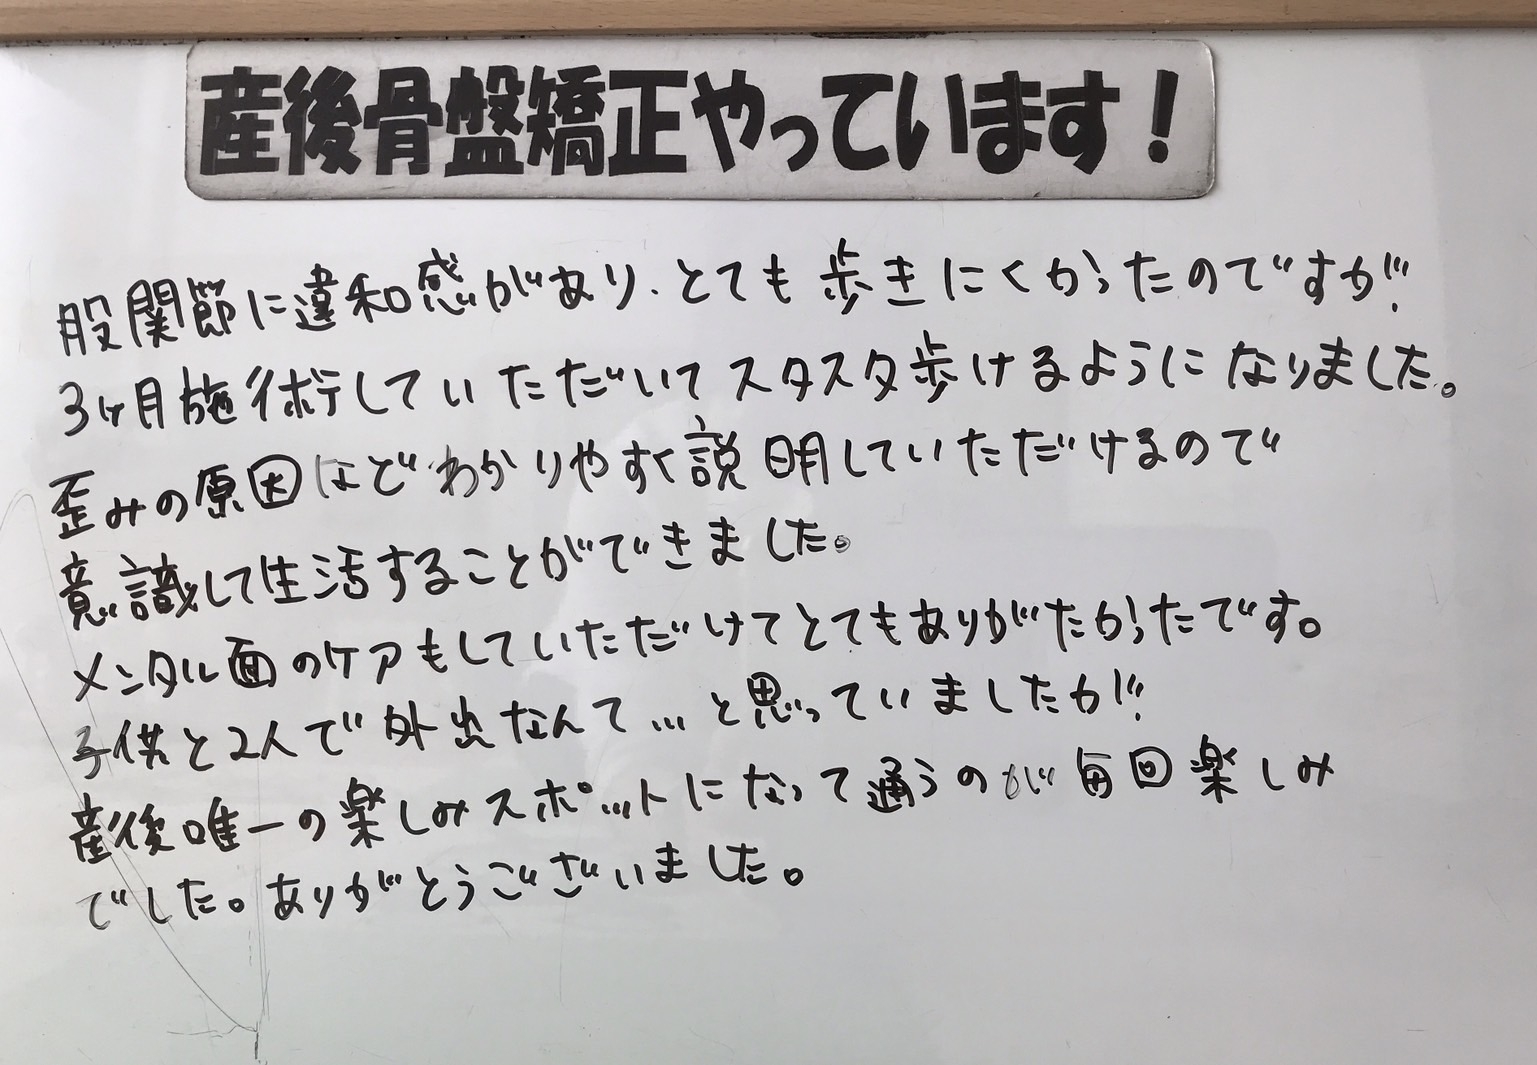 産後骨盤矯正やっています!
股関節に違和感があり、とても歩きにくかったのですが!!
3ヶ月施術していただいてスタスタ歩けるようになりました。
歪みの原因などわかりやすく説明していただけるので
意識して生活することができました。
メンタル面のケアもしていただけてとてもありがたかったです。
子供と2人で外出なんて…と思っていましたが!!
産後唯一の楽しみスポットになって通うのが毎回楽しみ
でした。ありがとうございました。